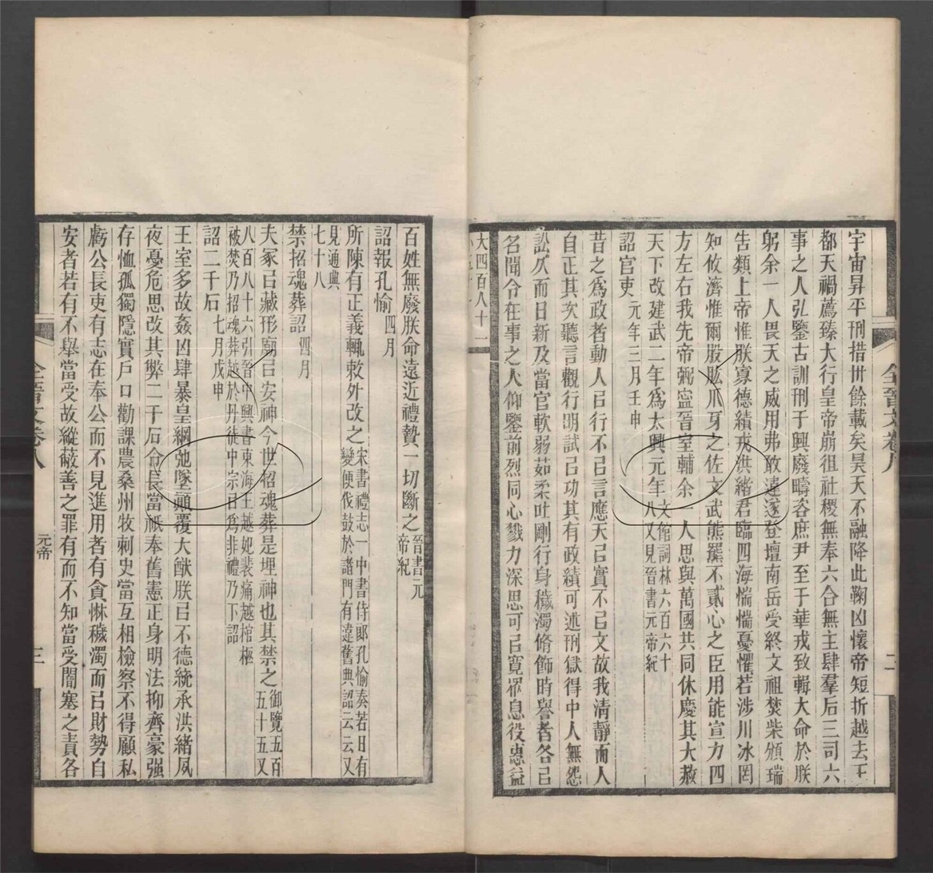 宇宙昇平刑措卅餘載矣昊天不融降此鞠凶懷帝短折越去王
都天禍薦臻大行皇帝崩徂社稷無奉六合無主肆羣后三司六
事之人弘鑒古訓刊于興廢疇咨庶尹至于華戎致輯大命於朕
躬余一人畏天之威用弗敢違遂登壇南岳受終文祖焚柴頒瑞
告類上帝惟朕寡德纘戎洪緒君臨四海惴惴憂懼若涉川冰罔
知攸濟惟爾股肱爪牙之佐文武熊羆不貳心之臣用能宣力四
方左右我先帝弼寍晉室輔余一人思與萬國共同休慶其大赦
天下改建武二年爲太興元年文館詞林六百六十八又見晉書元帝紀
詔官吏 元年三月壬申
昔之爲政者動人㠯行不㠯言應天㠯實不㠯文故我清靜而人
自正其次聽言觀行明試㠯功其有政績可述刑獄得中人無怨
訟久而日新及當官軟弱茹柔吐剛行身穢濁脩飾時譽者各㠯
名聞令在事之人仰鑒前烈同心戮力深思可㠯寬眾息役惠益
大四百八十一
全晉文卷八
二
百姓無廢朕命遠近禮贄一切斷之晉書元帝紀
詔報孔愉 四月
所陳有正義輒敕外改之宋書禮志一中書侍郎孔愉奏若日有變便伐鼓於諸門有違舊典詔云云又
見通典七十八
禁招魂葬詔 四月
夫冢㠯藏形廟㠯安神今世招魂葬是埋神也其禁之御覽五百五十五又
八百八十六引晉中興書東海王越妃裴痛越棺柩被焚乃招魂葬越於丹徒中宗㠯爲非禮乃下詔
詔二千石 七月戊申
王室多故姦凶肆暴皇綱弛墜顛覆大猷朕㠯不德統承洪緒夙
夜憂危思改其獘二千石令長當祗奉舊憲正身明法抑齊豪强
存恤孤獨隱實戸口勸課農桑州牧刺史當互相檢察不得顧私
虧公長吏有志在奉公而不見進用者有貪惏穢濁而㠯財勢自
安者若有不舉當受故縱蔽善之罪有而不知當受闇塞之責各
全晉文卷八
元帝
三